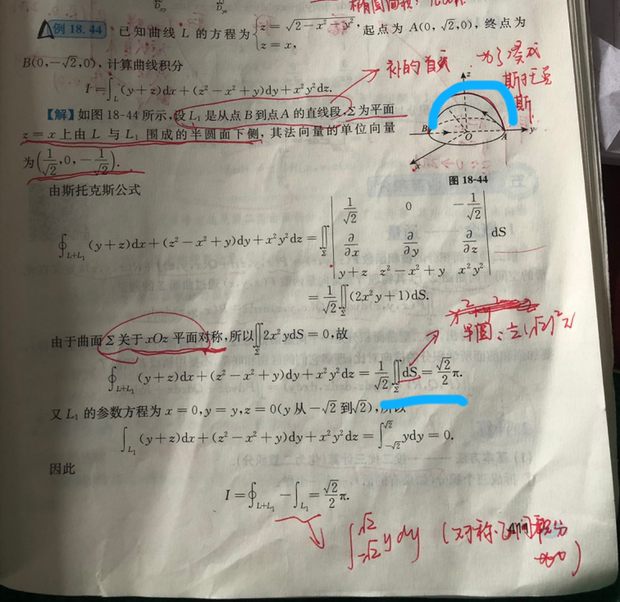 例 18.44 已知曲线 L 的方程为 { z = √2−x²−y², 起点为 A(0, √2, 0), 终点为
z = x,
B(0, −√2, 0), 计算曲线积分
I = ∫_L (y+z)dx + (z²−x²+y)dy + x²y²dz.
补的首
为了凑成
斯托克
斯
【解】如图 18-44 所示, 设 L₁ 是从点 B 到点 A 的直线段, Σ 为平面
z = x 上由 L 与 L₁ 围成的半圆面下侧, 其法向量的单位向量
为 (1/√2, 0, −1/√2).
z
B O A y
图 18-44
由斯托克斯公式
∮_{L+L₁} (y+z)dx + (z²−x²+y)dy + x²y²dz = ∬_Σ | 1/√2 0 −1/√2 |
| ∂/∂x ∂/∂y ∂/∂z | dS
| y+z z²−x²+y x²y² |
= 1/√2 ∬_Σ (2x²y+1)dS.
半圆: ½(√2)²π
由于曲面 Σ 关于 xOz 平面对称, 所以 ∬_Σ 2x²ydS = 0, 故
∮_{L+L₁} (y+z)dx + (z²−x²+y)dy + x²y²dz = 1/√2 ∬_Σ dS = √2/2 π.
又 L₁ 的参数方程为 x = 0, y = y, z = 0 (y 从 −√2 到 √2), 所以
∫_{L₁} (y+z)dx + (z²−x²+y)dy + x²y²dz = ∫_{−√2}^{√2} ydy = 0.
因此
I = ∮_{L+L₁} − ∫_{L₁} = √2/2 π.
∫_{−√2}^{√2} y dy (对称区间积分